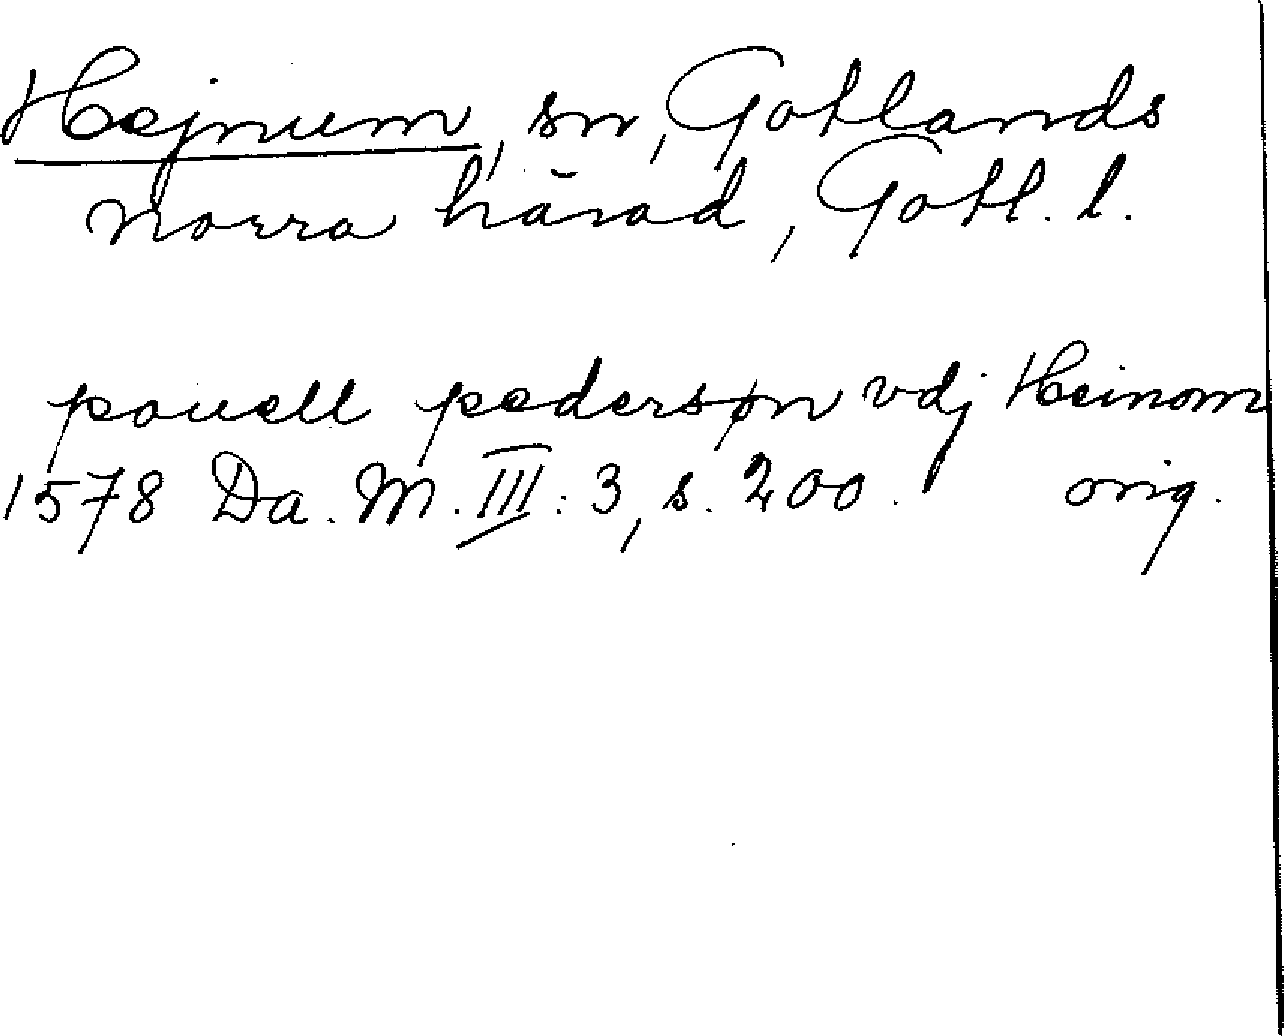 Hejnum, sn, Gotlands
norra härad, Gotl. l.
pouell pedersøn vdj Heinom
1578 Da. M. III: 3, s. 200. orig.